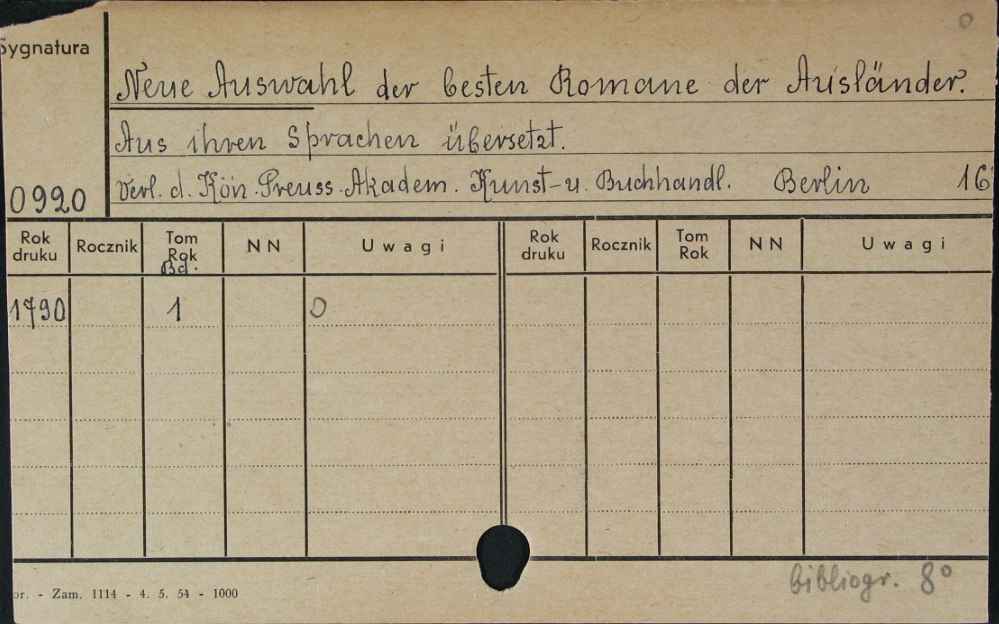 O
Sygnatura
Neue Auswahl der besten Romane der Ausländer.
Aus ihren Sprachen übersetzt.
0990 Verl. d. Kön. Preuss. Akadem. Kunst- u. Buchhandl. Berlin 16
Rok druku Rocznik Tom Rok Bd. NN Uwagi Rok druku Rocznik Tom Rok NN Uwagi
1790 1 O
bibliogr. 8°
or. - Zam. 1114 - 4. 5. 54 - 1000